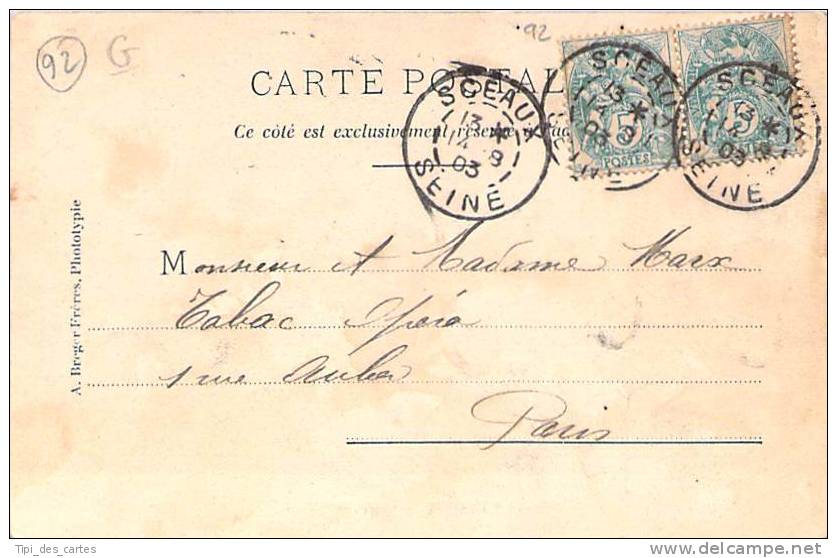 92
G
92
CARTE POSTAL
Ce côté est exclusivement réservé à l'ad
SCEAUX
13 *
14 - 9
03
SEINE
SCEAUX
13 *
03
SEINE
5
POSTES
SCEAUX
13 *
03
SEINE
5
Monsieur et Madame Marx
Tabac Opéra
1 rue Auber
Paris
A. Breger Frères, Phototypie
Tipi_des_cartes
delcampe.net